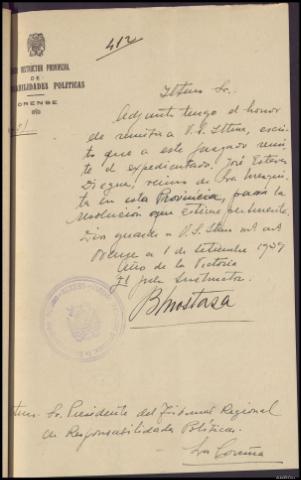 412
DE
RESPONSABILIDADES POLITICAS
ORENSE
Iltmo Sr.
Adjunto tengo el honor
de remitir a V.S. Iltma, escri-
to que a este juzgado remi-
te el expedientado, José Esteves
vecino de
en esta Provincia, para la
resolución que estime pertinente.
Dios guarde a V.S. Iltma
Orense a 1 de setiembre 1939
Año de la Victoria
El Juez Instructor
Sr. Presidente del Tribunal Regional
de Responsabilidades Políticas.
La Coruña